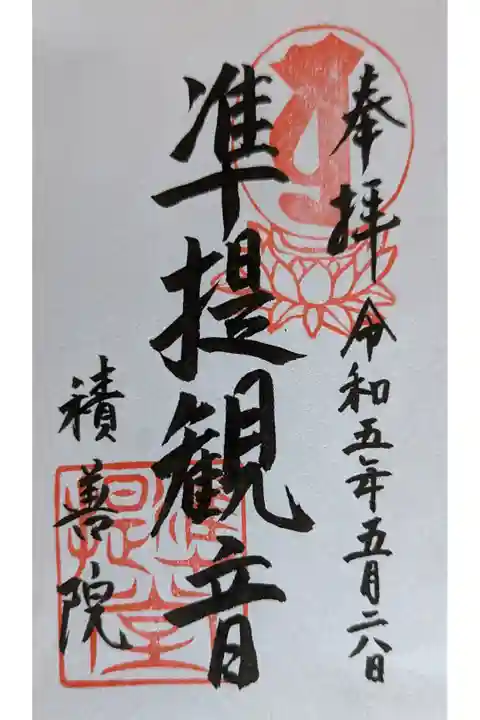 奉拝 令和五年五月二八日
准提観音
積善院
准提堂